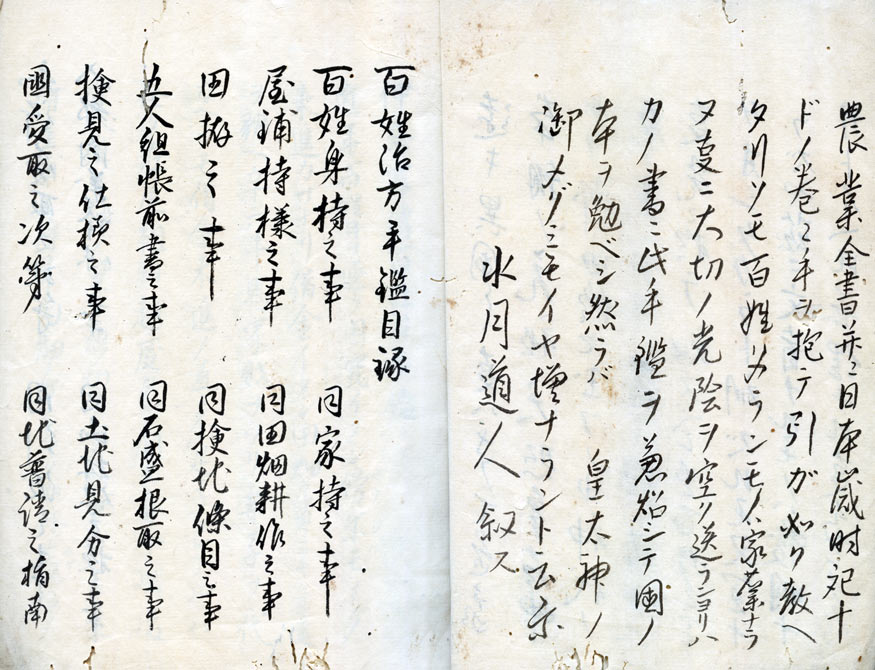 農業全書并ニ日本歳時記十
ドノ巻々ノ手ヲ抱テ引ガ如ク教ヘ
タリソモ百姓タランモノハ家業ナラ
ヌ夏ニ大切ノ光陰ヲ空ク送ランヨリハ
カノ書ニ此手鑑ヲ兼照シテ国ノ
本ヲ勉ベシ然ラバ 皇太神ノ
御メグミモイヤ増ナラント云尓
水月道人叙ス
百姓治方手鑑目録
百姓身持之事 同家持之事
屋鋪持様之事 同田畑耕作之事
田拵之事 同検地條目之事
五人組帳前書之事 同石盛根取之事
検見之仕様之事 同土地見分之事
圖受取之次第 同地普請之指南